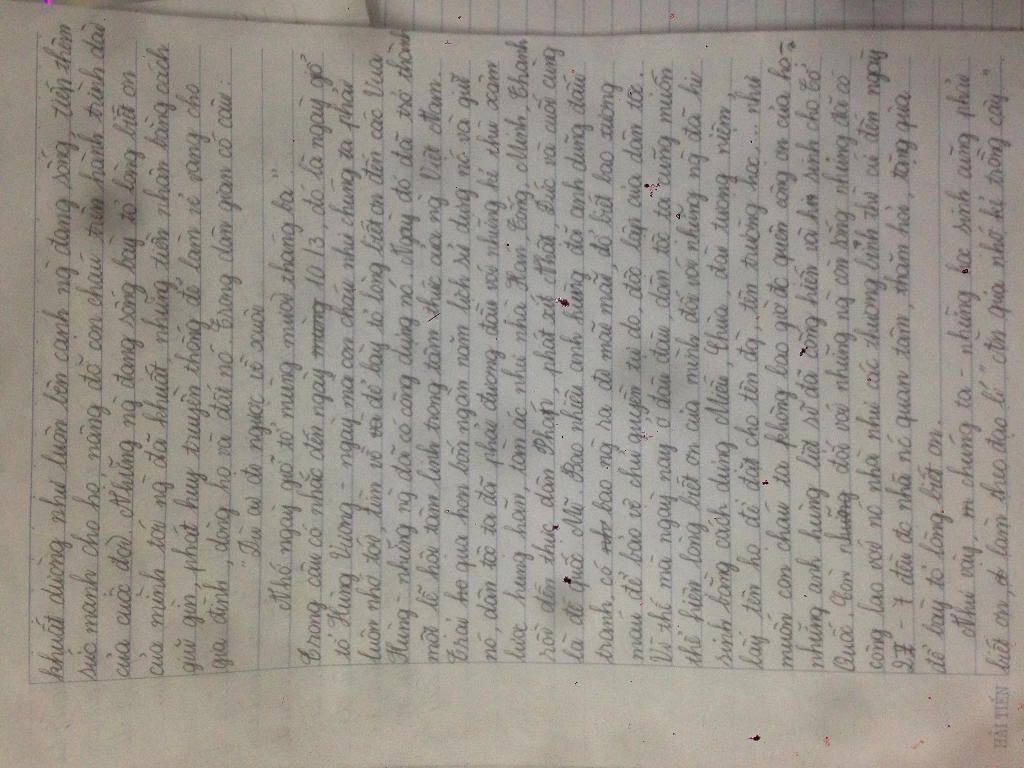 khuất dường như luôn bên cạnh ng đang sống, tiếp thêm
sức mạnh cho họ, nâng đỡ con cháu trên hành trình dài
của cuộc đời. Những ng đang sống bày tỏ lòng biết ơn
của mình tới ng đã khuất những tiền nhân bằng cách
giữ gìn, phát huy truyền thống để làm rẻ vang cho
gia đình, dòng họ và đất nc. Trong dân gian có câu:
"Dù ai đi ngược về xuôi
Nhớ ngày giỗ tổ mùng mười tháng ba"
Trong câu có nhắc đến ngày 10/3, đó là ngày giỗ
tổ Hùng Vương - ngày mà con cháu như chúng ta phải
luôn nhớ tới, tìm về và để bày tỏ lòng biết ơn đến các Vua
Hùng - những ng đã có công dựng nc. Ngày đó đã trở thành
một lễ hội tâm linh trong tâm thức của ng Việt Nam.
Trải qua hơn bốn ngàn năm lịch sử dựng nc và giữ
nc, dân tộc ta đã phải đương đầu với những kẻ thù xâm
lược hung hãn, tàn ác như nhà Hán, Tống, Minh, Thanh
rồi đến thực dân Pháp, phát xít Nhật, Đức và cuối cùng
là đế quốc Mĩ. Bao nhiêu anh hùng đã anh dũng đấu
tranh, có bao ng ra đi mãi mãi, đổ biết bao xương
máu để bảo vệ chủ quyền tự do, độc lập của dân tộc.
Vì thế mà ngày nay ở đâu đâu, dân tộc ta cũng muốn
thể hiện lòng biết ơn của mình đối với những ng đã hi
sinh bằng cách dựng Miếu, Chùa, đài tưởng niệm
lấy tên họ để đặt cho tên đg, tên trường học... như
muốn con cháu ta không bao giờ đc quên công ơn của họ -
những anh hùng lịch sử đã cống hiến và hi sinh cho Tổ
Quốc. Còn đối với những ng còn sống nhưng đã có
công lao với nc nhà như các thương binh thì cứ đến ngày
27 - 7 đều đc nhà nc quan tâm, thăm hỏi, tặng quà
để bày tỏ lòng biết ơn.
Như vậy, chúng ta - những học sinh cũng phải
biết ơn, làm theo đạo lí "Ăn quả nhớ kẻ trồng cây".
HẢI TIẾN